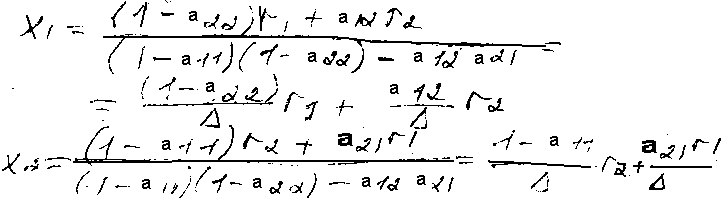 x₁ = ((1 - a₂₂)r₁ + a₁₂r₂) / ((1 - a₁₁)(1 - a₂₂) - a₁₂a₂₁) =
= ((1 - a₂₂) / Δ) r₁ + (a₁₂ / Δ) r₂
x₂ = ((1 - a₁₁)r₂ + a₂₁r₁) / ((1 - a₁₁)(1 - a₂₂) - a₁₂a₂₁) = ((1 - a₁₁) / Δ) r₂ + (a₂₁r₁ / Δ)